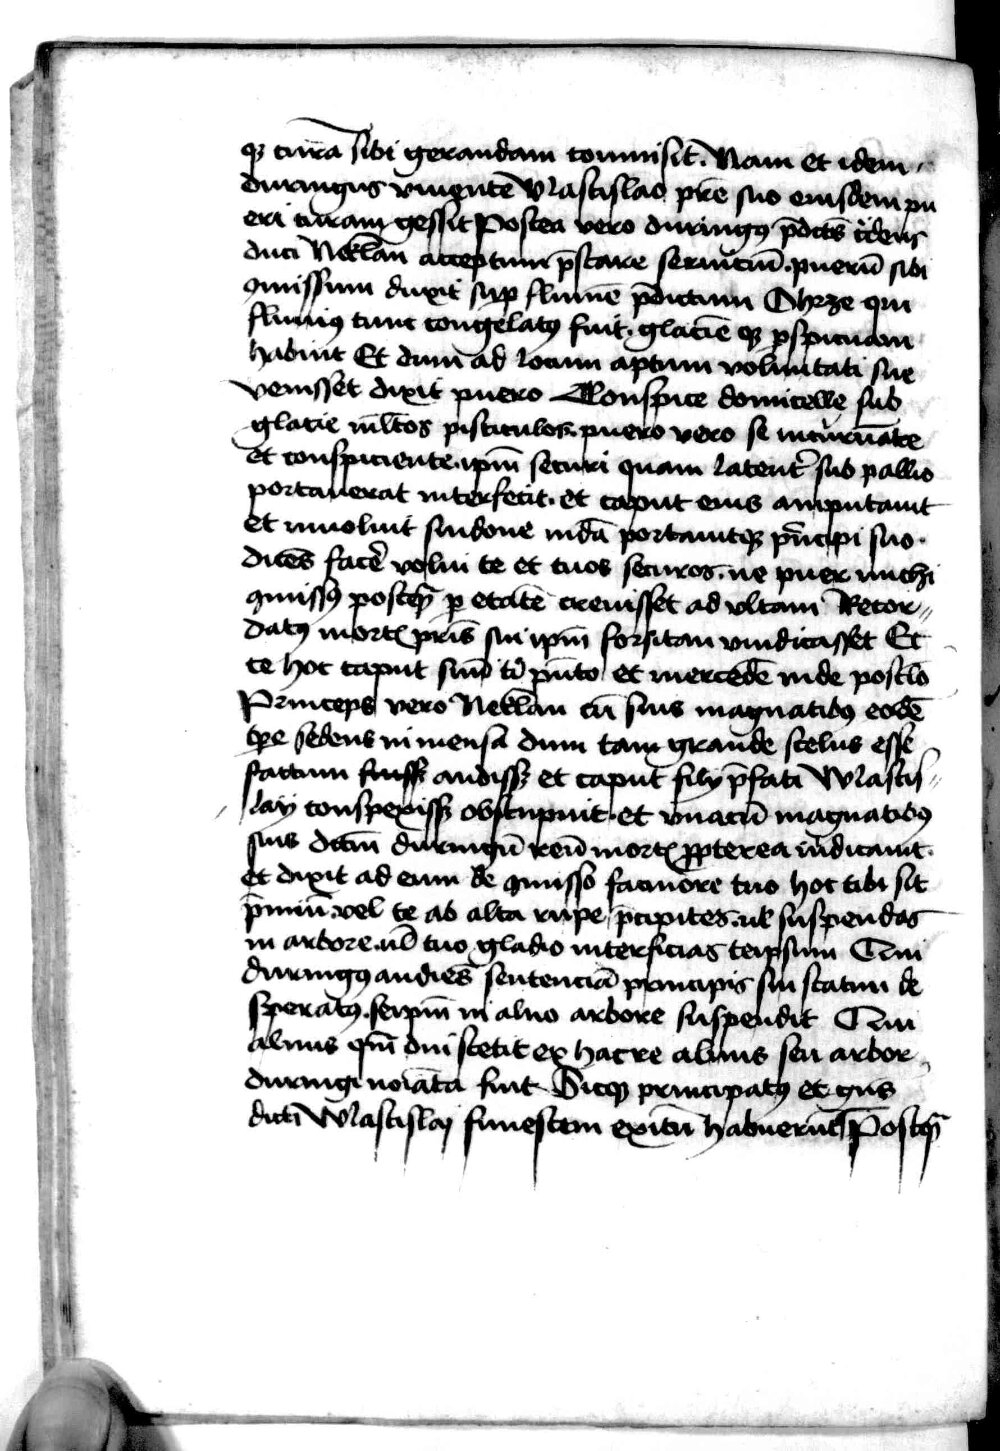 qꝫ curã sibi gerandam commisit. Nam et idem
duringus viuentẽ Wlastislao pr̃e suo eiusdem pu
eri curam gessit Postea vero duringꝰ p̃dc̃s c̃dens
duci Neklan acceptum p̃stare seruiciũ. puerũ sibi
ꝯmissum duxit sup flumẽ p̃dictum Ohrze qui
fluuiꝰ tunc congelatꝰ fuit. glaciẽ qꝫ ꝑspicuam
habuit Et dum ad locum aptum voluntati sue
venisset dixit puero Conspice domicelle sub
glacie ml̃tos pisciculos. puero vero se incuruãte
et conspiciente. ip̃m securi quam latent̾ sub pallio
portauerat interfecit. et caput eius amputauit
et inuoluit sindone mdã portauitqꝫ p̃ncipi suo.
dicẽs facẽ volui te et tuos securos. ne puer michi
ꝯmissꝰ postqꝫ̃ ꝑ etatẽ creuisset ad vltam Recor
datꝰ mortꝭ pr̃is sui ip̃m forsitan vindicasset Et
ce hoc caput suũ t̾ pñto et mercedẽ inde postlo
Princeps vero Neklan cũ suis magnatibꝰ eodẽ
tp̃e sedens in mensa dum tam grande scelus esse
factum fuissꝫ audissꝫ et caput filij p̃fati Wlastis
laij conspexissꝫ obstupuit. et vnacũ magnatibꝰ
suis dc̃m duringũ reũ mortꝭ ꝓpterea iudicauit.
et dixit ad eum de ꝯmisso facinore tuo hoc tibi sit
p̃miũ. vel te ab alta rupe p̃cipites. ul̃ suspendas
in arbore. ul̃ tuo gladio interficias teipsum Qui
duringꝰ audiẽs sentenciã principis sui statim de
speratꝰ. seip̃m in alno arbore suspendit Que
alnus qm̃ diu stetit ex hac re alnus seu arbor
duringi noĩata fuit Sicqꝫ principatꝰ et gñs
dicti Wlastislaj funestem exitũ habuerũt Postqꝫ̃